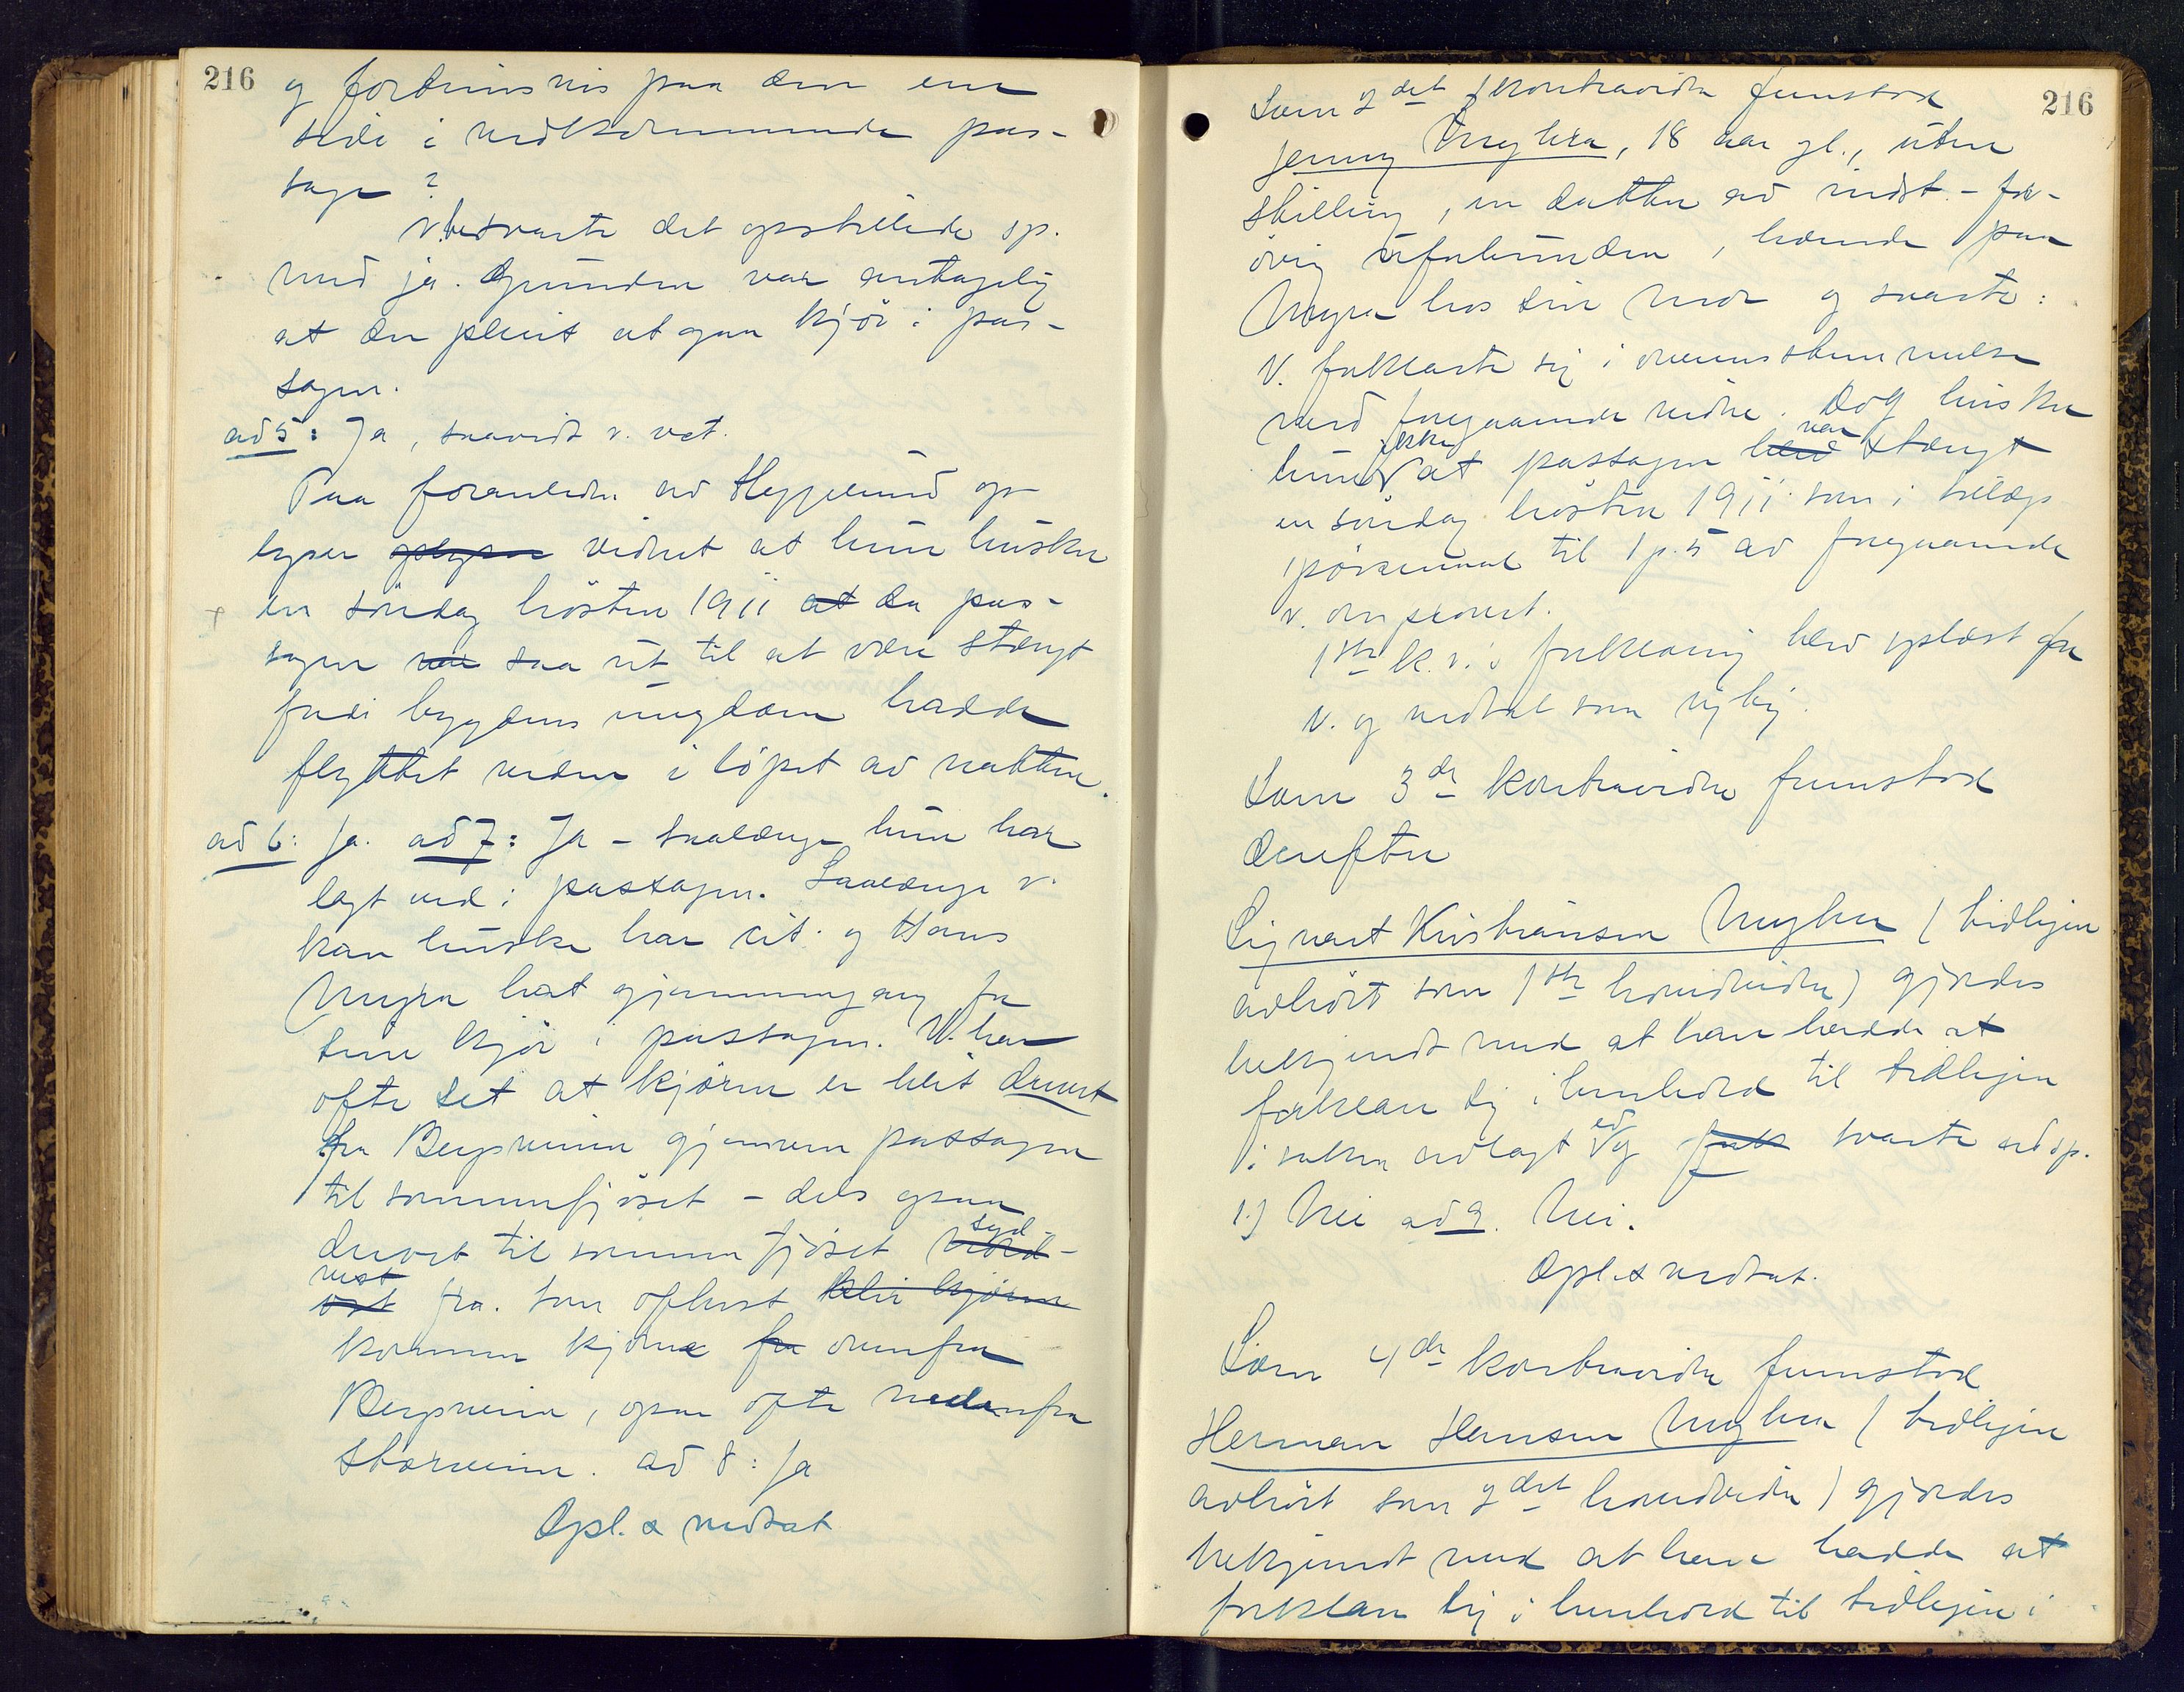 216
og fordrinsvis paa den ene
side i vedkommende pas-
sage?
V. besvarte det opstillede sp.
med ja. Grunden var antagelig
at den pleiet at gaa kjör i pas-
sagen.
ad 5: Ja, saavidt v. vet.
Paa foranledn av Heggelund op-
lyser oplyser vidnet at hun husker
en söndag hösten 1911 at da pas-
sagen var saa ut til at være stængt
fordi bygdens ungdom hadde
flyttet veden i löpet av natten.
ad 6: Ja. ad 7: Ja - saalænge hun har
lagt ved i passagen. Saalænge v.
kan huske har cit. og Hans
Myra hat gjennemgang for
sine kjör i passagen. V. har
ofte set at kjörne er blit drevet
fra Bergveien gjennem passagen
til sommerfjöset - dels ogsaa
drevet til sommerfjöset nord- syd-
öst vest fra. Som oftest blir kjörne
kommer kjörne fra ovenfra
Bergveien, ogsaa ofte nedenfra
Storveien. ad 8: Ja
Opl. & vedtat
216
Som 2det kontravidne fremstod
Jenny Myhra, 18 aar gl., uten
stilling, en datter av indst. - for-
övrig uforbunden, hjemme paa
Myra hos sin mor og svarte:
V. forklarte sig i overensstemmelse
med foregaaende vidne. Dog husker
hun ikke at passagen blev var stængt
en söndag hösten 1911 som i tillægs
spörsmaal til sp. 5 av foregaaende
v. omprovet.
1ste k.v.s forklaring blev oplæst for
v. og vedtat som rigtig.
Som 3de kontravidne fremstod
derefter
Sigvart Kristiansen Myhra (tidligere
avhört som 1ste hovedvidne) gjordes
bekjendt med at han hadde at
forklare sig i henhold til tidligere
i saken avlagt ed og forkl svarte ad sp.
1.) Nei ad 2. Nei.
Opl. & vedtat.
Som 4de kontravidne fremstod
Herman Hansen Myhra (tidligere
avhört som 2det hovedvidne) gjordes
bekjendt med at han hadde at
forklare sig i henhold til tidligere i